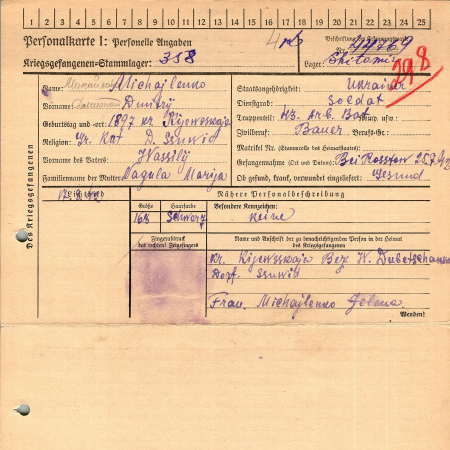 1 2 3 4 5 6 7 8 9 10 11 12 13 14 15 16 17 18 19 20 21 22 23 24 25
Personalkarte I: Personelle Angaben
Kriegsgefangenen-Stammlager: 358
Beschriftung der Erkennungsmarke
Nr. 44769
Lager: Shitomir
298
Des Kriegsgefangenen
Name: Michajlenko
Vorname: Dmitrij
Geburtstag und -ort: 1897 Kr. Kijewskaja
Religion: Gr. Kat D. Sznwid
Vorname des Vaters: Wassilij
Familienname der Mutter: Nagula Marija
Staatsangehörigkeit: Ukrainer
Dienstgrad: Soldat
Truppenteil: 43. Arb. Bat. Komp. usw.
Zivilberuf: Bauer Berufs-Gr.
Matrikel Nr. (Stammrolle des Heimatstaates)
Gefangennahme (Ort und Datum): Bei Rosstow 25.7.42
Ob gesund, krank, verwundet eingeliefert: Gesund
Lichtbild
Nähere Personalbeschreibung
Größe Haarfarbe Besondere Kennzeichen:
165 Schwarz keine
Fingerabdruck
des rechten! Zeigefingers
Name und Anschrift der zu benachrichtigenden Person in der Heimat
des Kriegsgefangenen
Kr. Kijewskaja Bez. W. Dubetschanski
Dorf.
Frau. Michajlenko Jelena
Wenden!